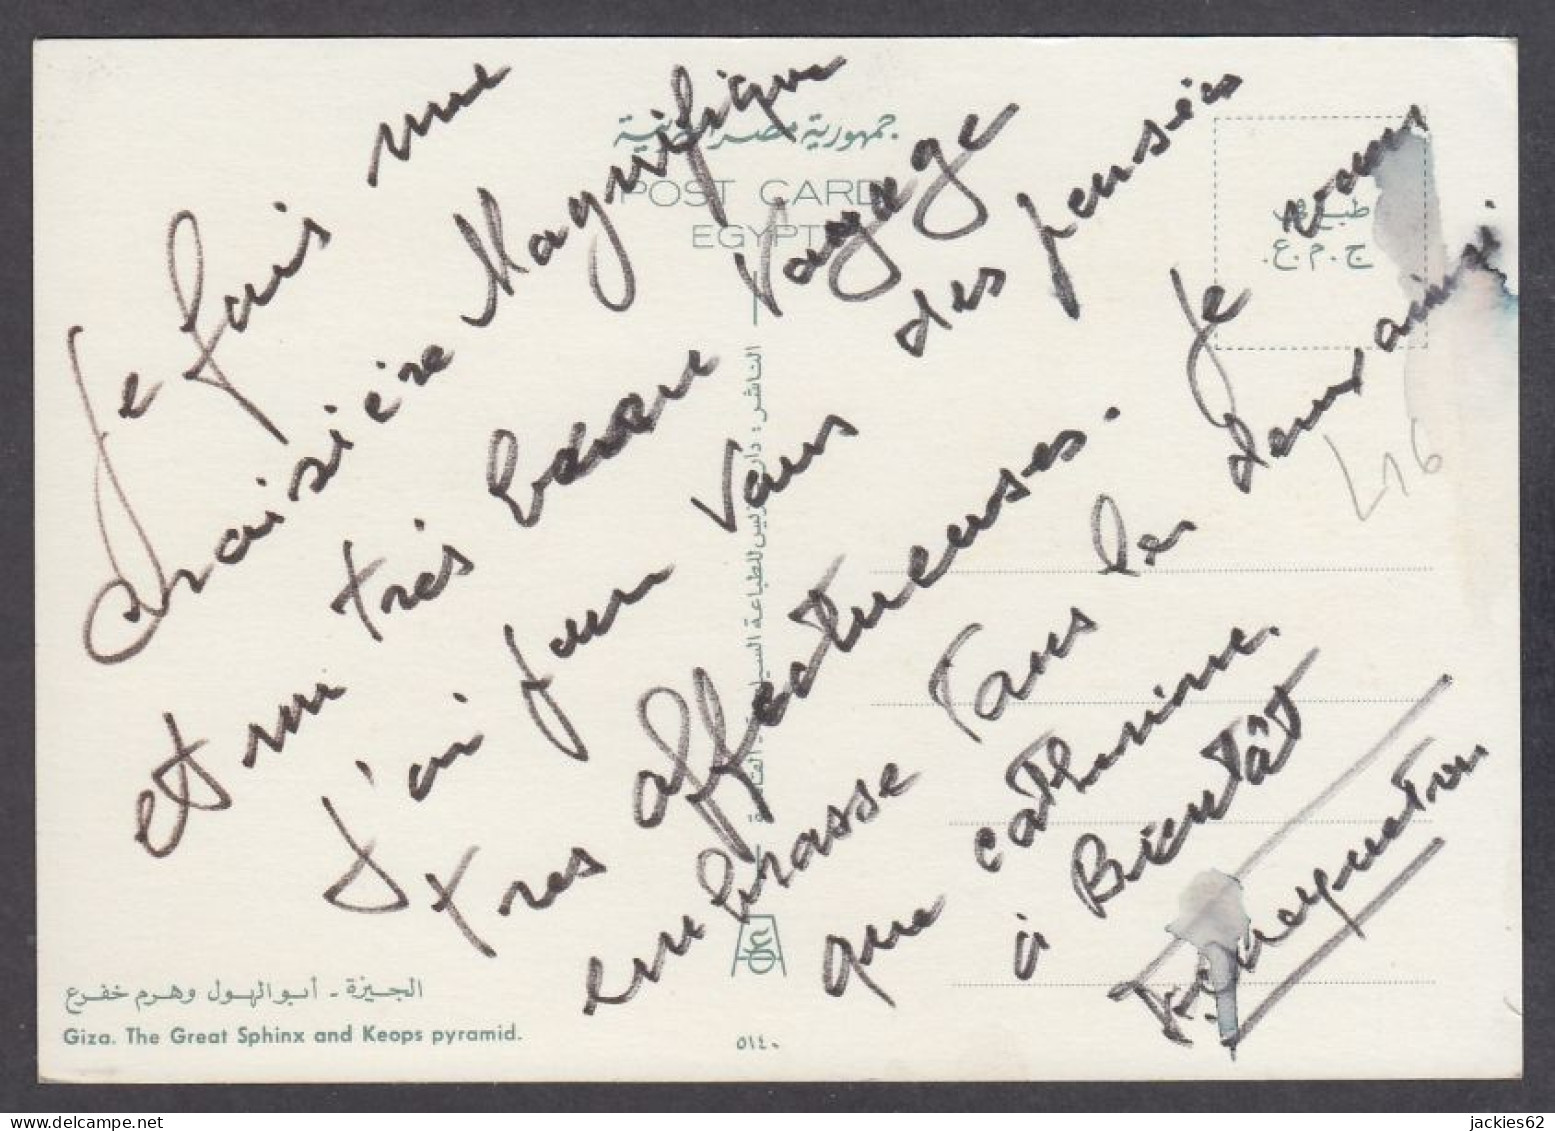 Je fais une
croisière Magnifique
et un très beau voyage
J'ai pour vous des pensées
très affectueuses. Je vous
embrasse tous les deux ainsi
que catherine.
à Bientôt
جمهورية مصر العربية
POST CARD
EGYPT
ج.م.ع.
L16
الجيزة - أبو الهول وهرم خفرع
Giza. The Great Sphinx and Keops pyramid.
٥١٤٠
jackies62